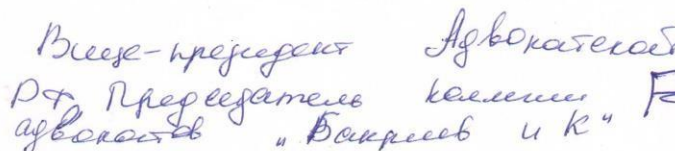 Вице-президент Адвокатской
РФ, Председатель коллегии
адвокатов "Бакриев и К"